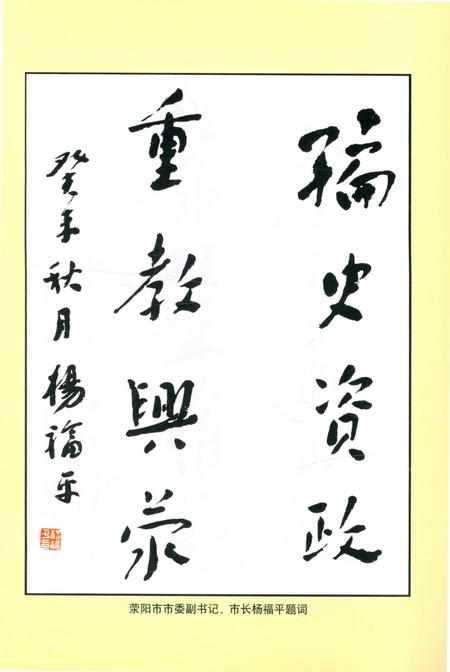 编史资政
重教興荥
癸未秋月 楊福平
荥阳市市委副书记、市长杨福平题词